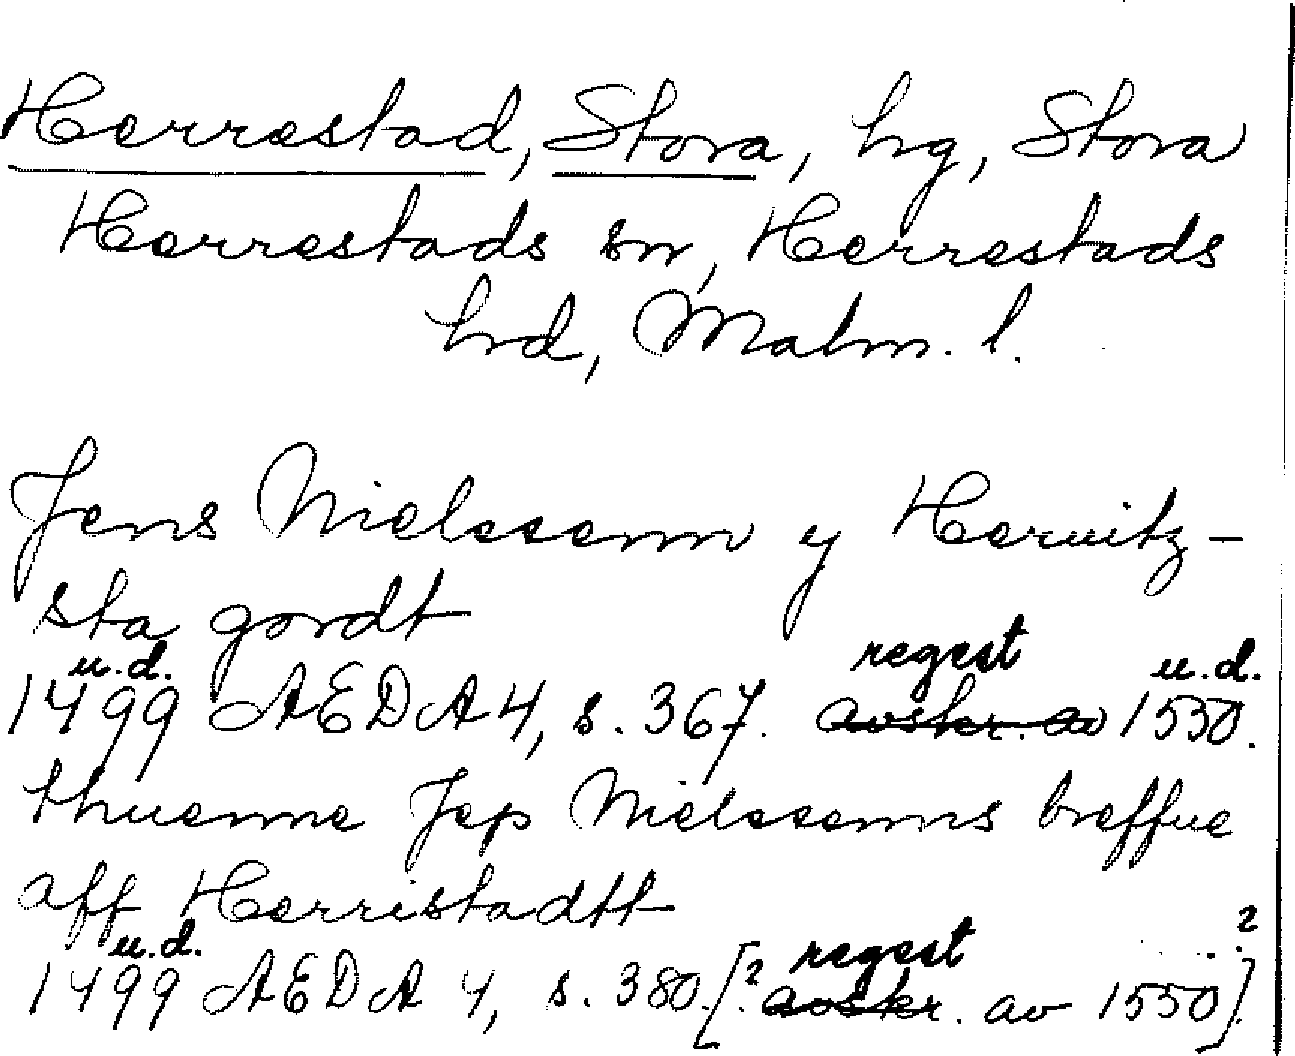 Herrestad, Stora, hrg, Stora
Herrestads sn, Herrestads
hrd, Malm. l.
Jens Nielssenn y Heruitz-
sta gordt
u.d. regest u.d.
1499 AEDA 4, s. 367. avskr. av 1550.
thuenne Jep Nielssenns breffue
aff Herristadtt
u.d. regest ?
1499 AEDA 4, s. 380. [? avskr. av 1550]